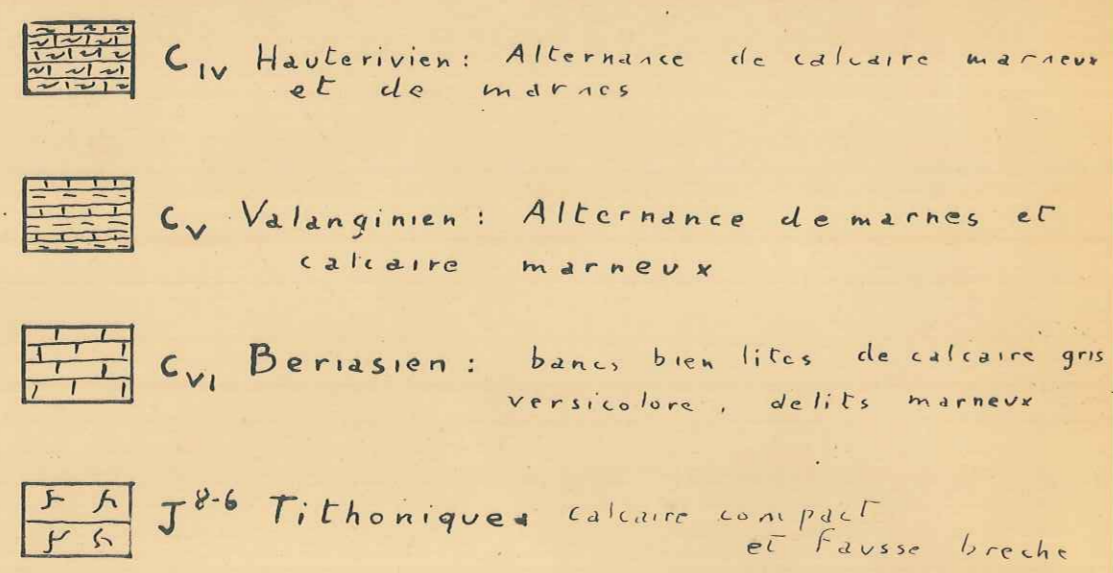 C IV Hauterivien: Alternance de calcaire marneux
et de marnes
C V Valanginien: Alternance de marnes et
calcaire marneux
C VI Beriasien: bancs bien lites de calcaire gris
versicolore, delits marneux
J 8-6 Tithonique calcaire compact
et Fausse breche